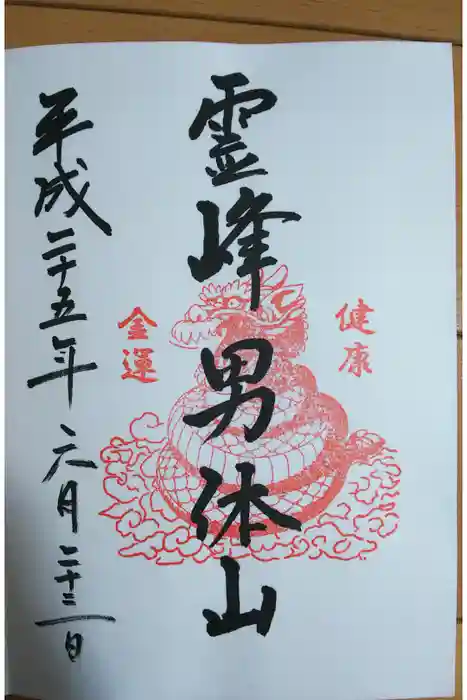 健康
霊峰男体山
金運
平成二十五年六月二十二日